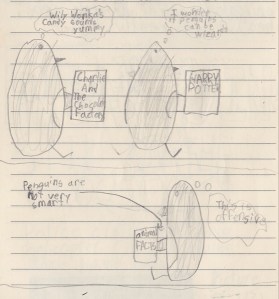 Willy Wonka's
Candy sounds
yummy
I wonder
if penguins
can be
wizards
Charlie
And
the
Chocolate
Factory
HARRY
POTTER
Penguins are
not very
smart
animal
FACTS
This is
offensive